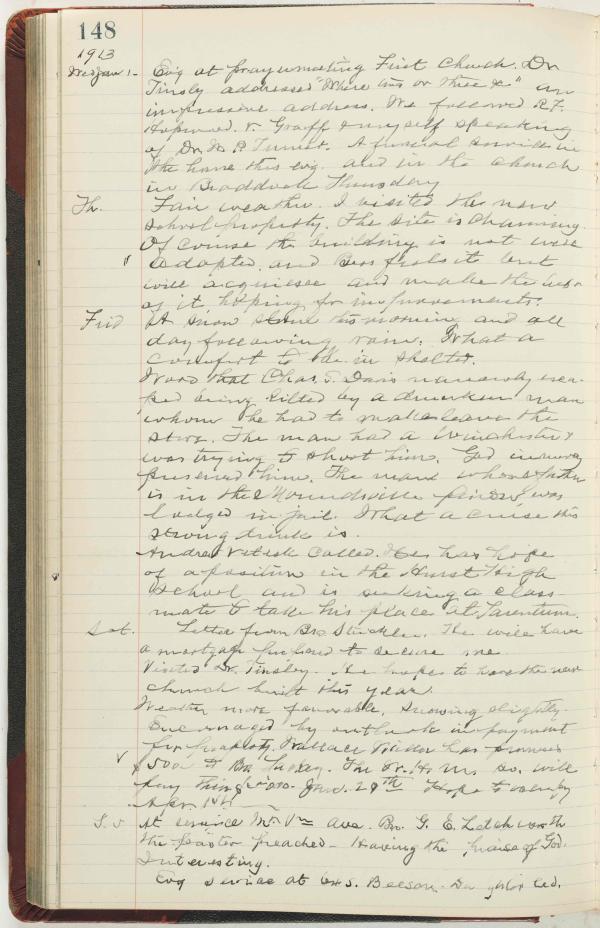 148
1913
Wed Jan 1 - Evg at prayermeeting First Church. Dr
Tinsly addressed "Where two or three &c" an
impressive address. We followed R.F.
V. Graff & myself speaking
of Dr. M. P. Turner. A funeral service in
the home this evg. and in the church
in Braddock Thursday
Th. Fair weather. I visited the new
school property. The site is charming.
Of course the building is not well
adapted, and Bess feels it but
will acquiesce and make the best
of it hoping for improvements.
Frid A snow storm this morning and all
day following rain. What a
comfort to be in shelter.
Word that Chas. S. Davis narrowly esca-
ped being killed by a drunken man
whom he had to make leave the
store. The man had a Winchester &
was trying to shoot him. God in mercy
preserved him. The man whose father
is in the Moundsville prison was
lodged in jail. What a curse this
strong drink is.
called. He has hope
of a position in the Hurst High
School and is seeking a class-
mate to take his place at Tarentum.
Sat. Letter from Bro Strickler. He will have
a mortgage prepared to secure me.
Visited Dr. Tinsley. He hopes to have the new
church built this year.
Weather more favorable, snowing slightly.
Encouraged by outlook in payment
for property. Wallace has promised
$500 to The Co. will
pay Jan. 28th Hope to
Apr. 1st
At service Mt. Vn Ave. Bro. G. E. Letchworth
the pastor preached - Having the praise of God.
Interesting.
Evg service at Beeson. led.